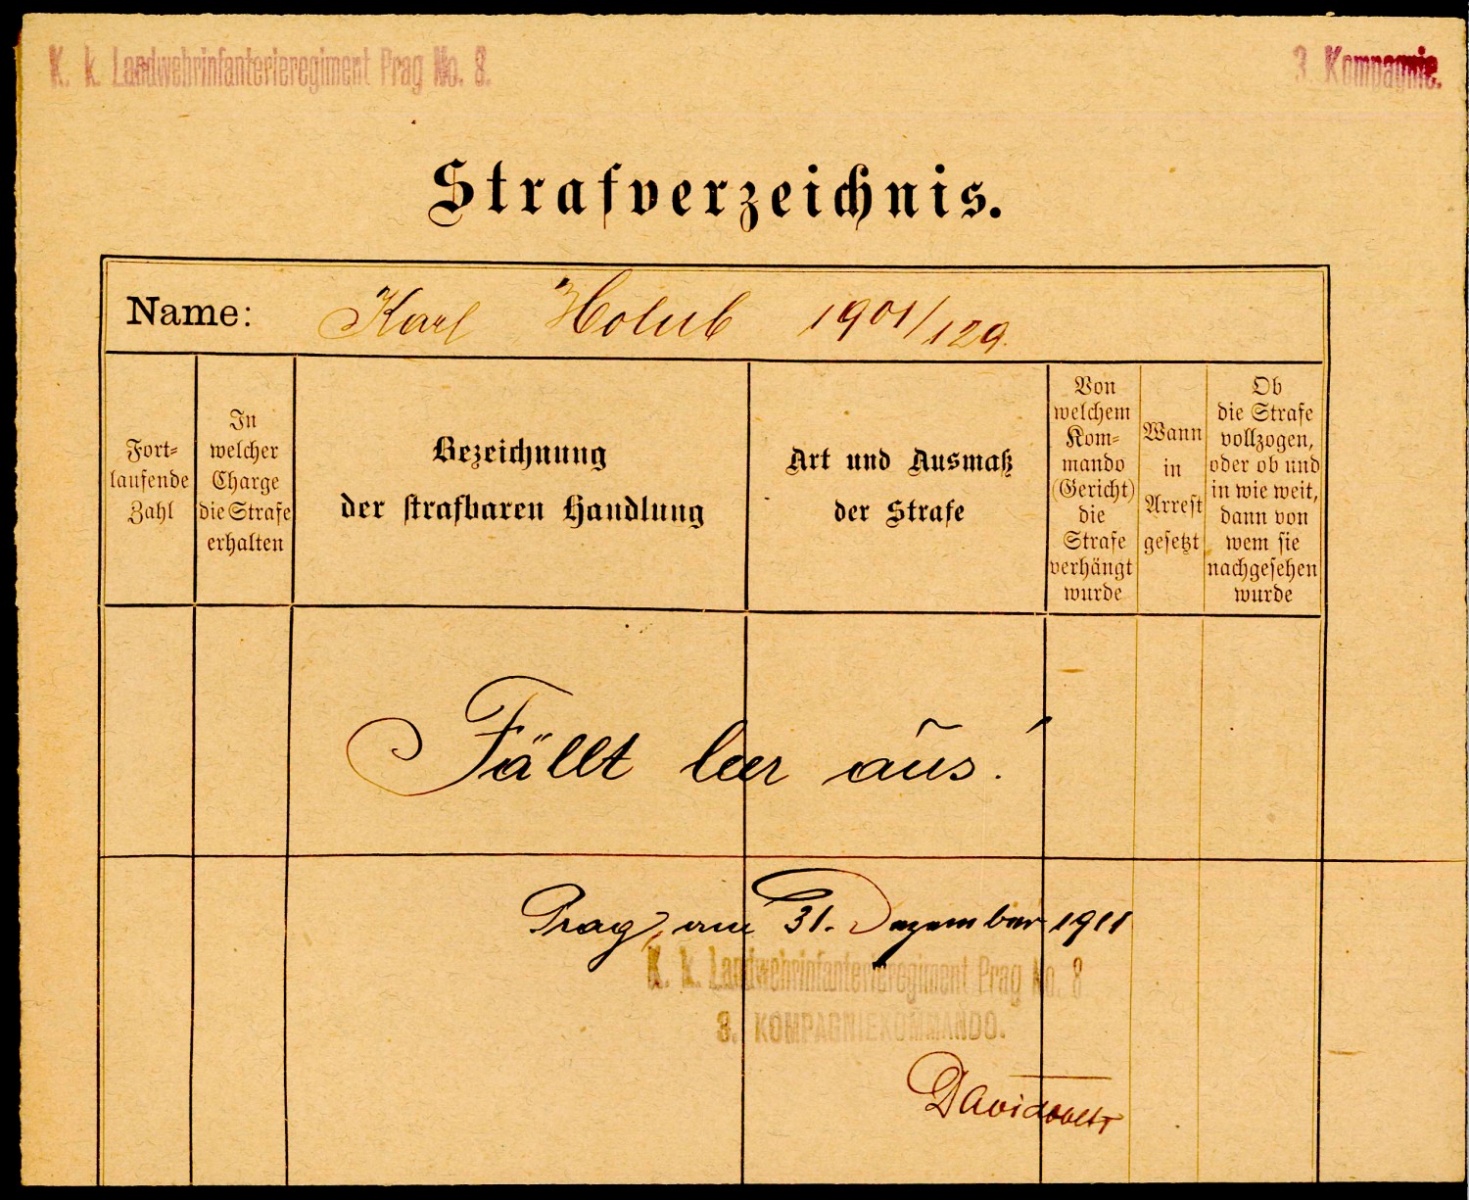 K. k. Landwehrinfanterieregiment Prag No. 8.
3. Kompagnie.
Strafverzeichnis.
Name: Karl Holub 1901/129.
Fort-
laufende
Zahl
In
welcher
Charge
die Strafe
erhalten
Bezeichnung
der strafbaren Handlung
Art und Ausmaß
der Strafe
Von
welchem
Kom-
mando
(Gericht)
die
Strafe
verhängt
wurde
Wann
in
Arrest
gesetzt
Ob
die Strafe
vollzogen,
oder ob und
in wie weit,
dann von
wem sie
nachgesehen
wurde
Fällt leer aus!
Prag, am 31. Dezember 1911
K. k. Landwehrinfanterieregiment Prag No. 8
3. KOMPAGNIEKOMMANDO.